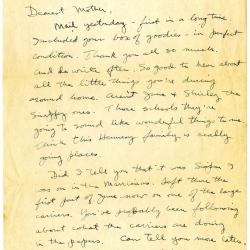 Dearest Mother,
Mail yesterday - first in a long time.
Included your box of goodies - in perfect
condition. Thank you all so much.
And do write often. So good to hear about
all the little things you're doing
around home. Aren't June & Shirley the
snappy ones. Those schools they're
going to sound like wonderful things to me.
think this Hennessy family is really
going places.
Did I tell you that it was Saipan I
was on in the Marianas. Left there the
first part of June now on one of the large
carriers. You've probably been following
about what the carriers are doing
in the papers. Can tell you more later